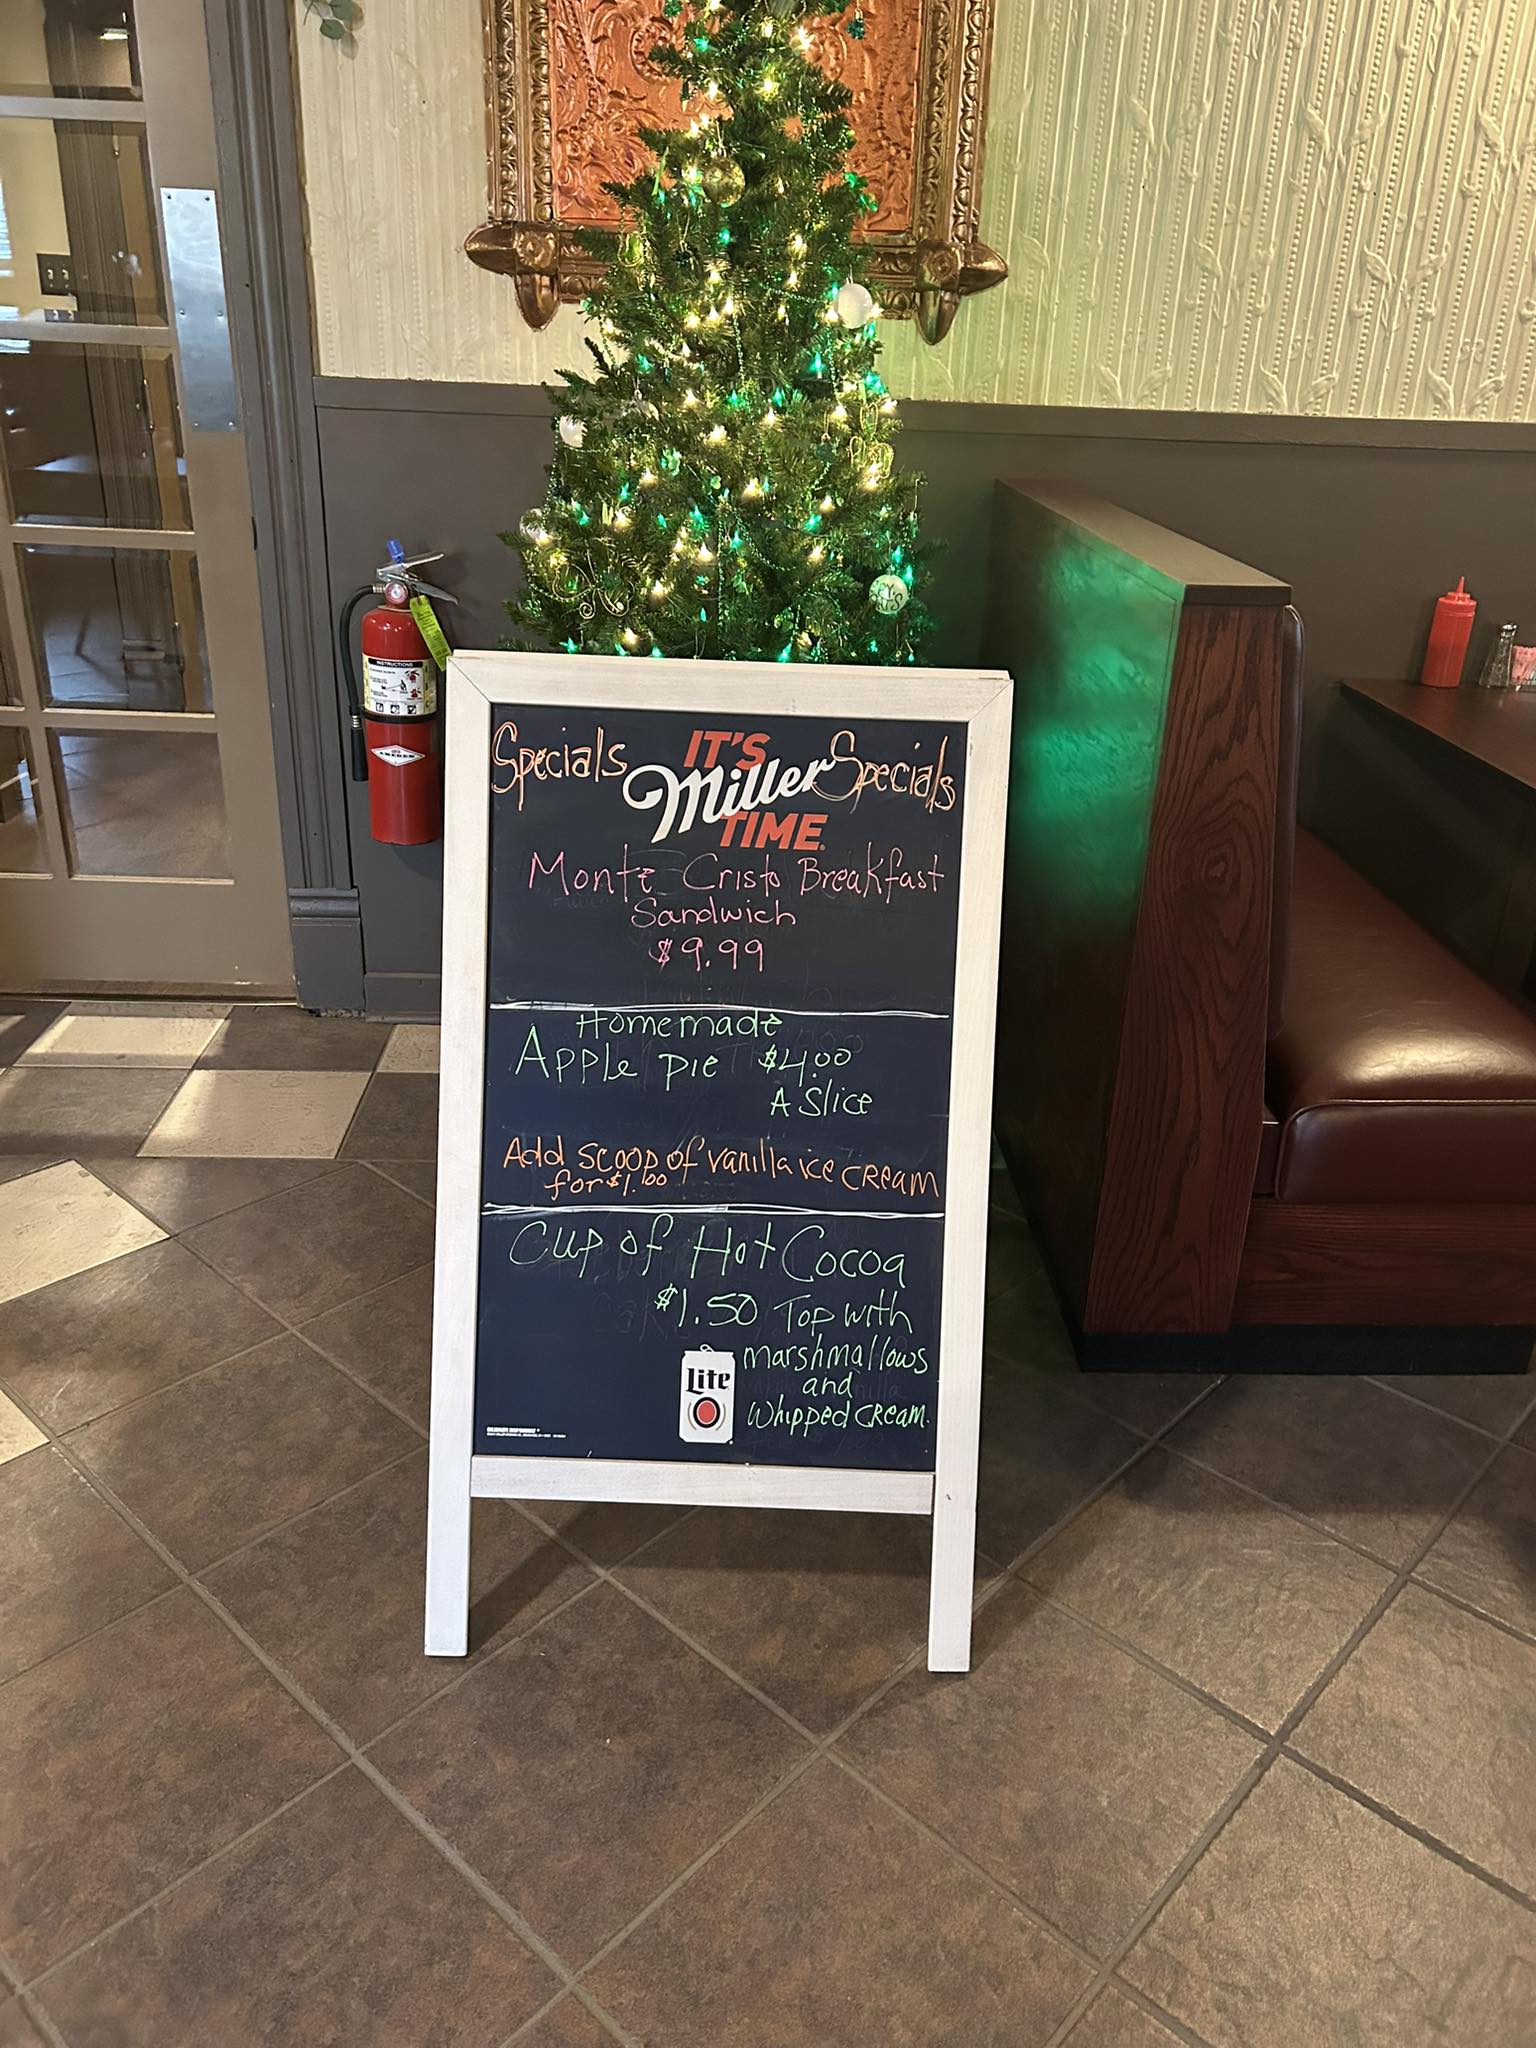 Specials IT'S Specials
Miller
TIME
Monte Cristo Breakfast
Sandwich
$9.99
Homemade
Apple pie $4.00
A Slice
Add scoop of vanilla ice cream
for $1.00
Cup of Hot Cocoa
$1.50 Top with
marshmallows
and
whipped cream.
Lite
INSTRUCTIONS
AMEREX